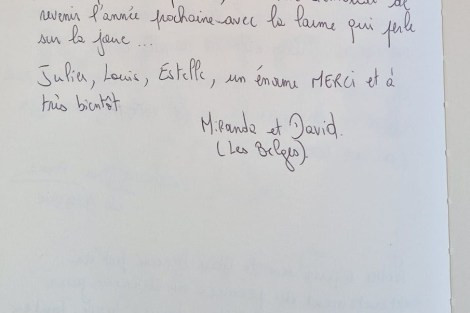 revenir l'année prochaine avec la larme qui perle
sur la joue ...
Julien, Louis, Estelle, un énorme MERCI et à
très bientôt
Miranda et David.
(Les Belges).